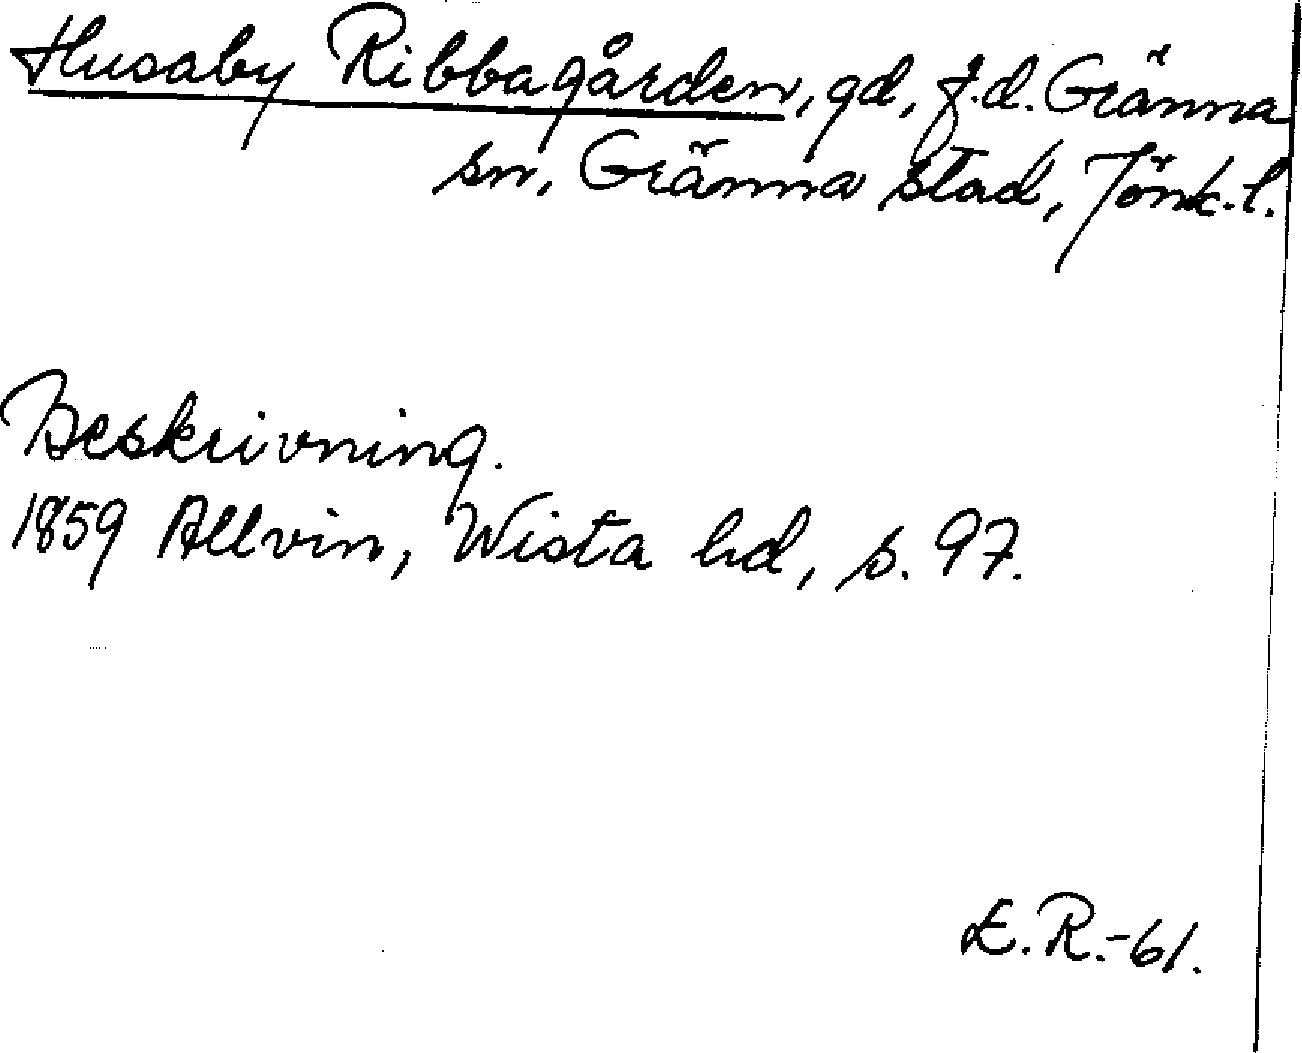 Husaby Ribbagården, gd, f.d. Gränna
sn, Gränna stad, Jönk. l.
Beskrivning.
1859 Allvin, Wista hd, s. 97.
E.R.-61.